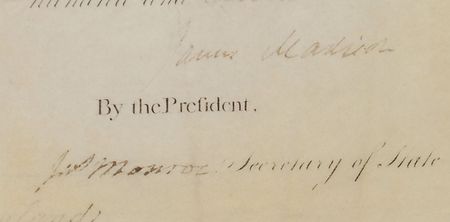 James Madison
By the Preſident,
Jaˢ Monroe Secretary of State